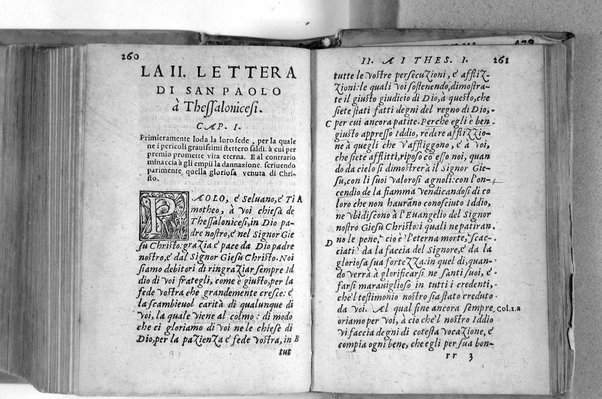 260
LA II. LETTERA
DI SAN PAOLO
à Thessalonicesi.
CAP. I.
Primieramente loda la loro fede, per la quale
ne i pericoli grauissimi stettero saldi. à cui per
premio promette vita eterna. E al contrario
minaccia à gli empii la dannazione. scriuendo
partimente, quella gloriosa venuta di Chri-
sto.
PAOLO, è Seluano, è Ti
moteo, à voi chiesa de
Thessalonicesi, in Dio pa-
dre nostro, è nel Signor Gie
su Christo: grazia, è pace da Dio padre
nostro, è dal Signor Giesu Christo. Noi
siamo debitori di ringraziar sempre Id
dio di voi frategli, come è giusto, per la
fede vostra che grandemente cresce: è
la scambieuol carità di qualunque di
voi, la quale viene al colmo: di modo
che ci gloriamo di voi ne le chiese di
Dio, per la pazienza è fede vostra, in B
tut
II. A I THES. I. 261
tutte le vostre persecuzioni, è afflizi-
zioni: le quali voi sostenendo, dimostra-
te il giusto giudicio di Dio, à questo, che
siete stati fatti degni del regno di Dio,
C per cui ancora patite. Perche egli è ben
giusto appresso Iddio, rédere afflizzio-
ni à quegli che v'affliggono, è à voi,
che siete afflitti, riposo cō esso noi, quan
do da cielo si dimostrerà il Signor Gie-
su, con li suoi valorosi agnoli: con l'on-
cendio de la fiamma vendicandosi di co
loro che non haurāno conosciuto Iddio,
ne vbidiscono à l'Euangelio del Signor
nostro Giesu Christo: i quali ne patiran
D no le pene, cio è l'eterna morte, scac-
ciati da la faccia del Signore, è da la
gloriosa sua fortezza: in quel di, quan-
do verrà à glorificarsi ne santi suoi, è
farsi marauiglioso in tutti i credenti,
che'l testimonio nostro sia stato creduto
da voi. Al qual fine ancora sempre Col.1.a
oriamo per voi, à cio che'l nostro Iddio
vi faccia degni di cotesta vocazione, è
compia ogni bene, che egli per sua bon-
rr 3